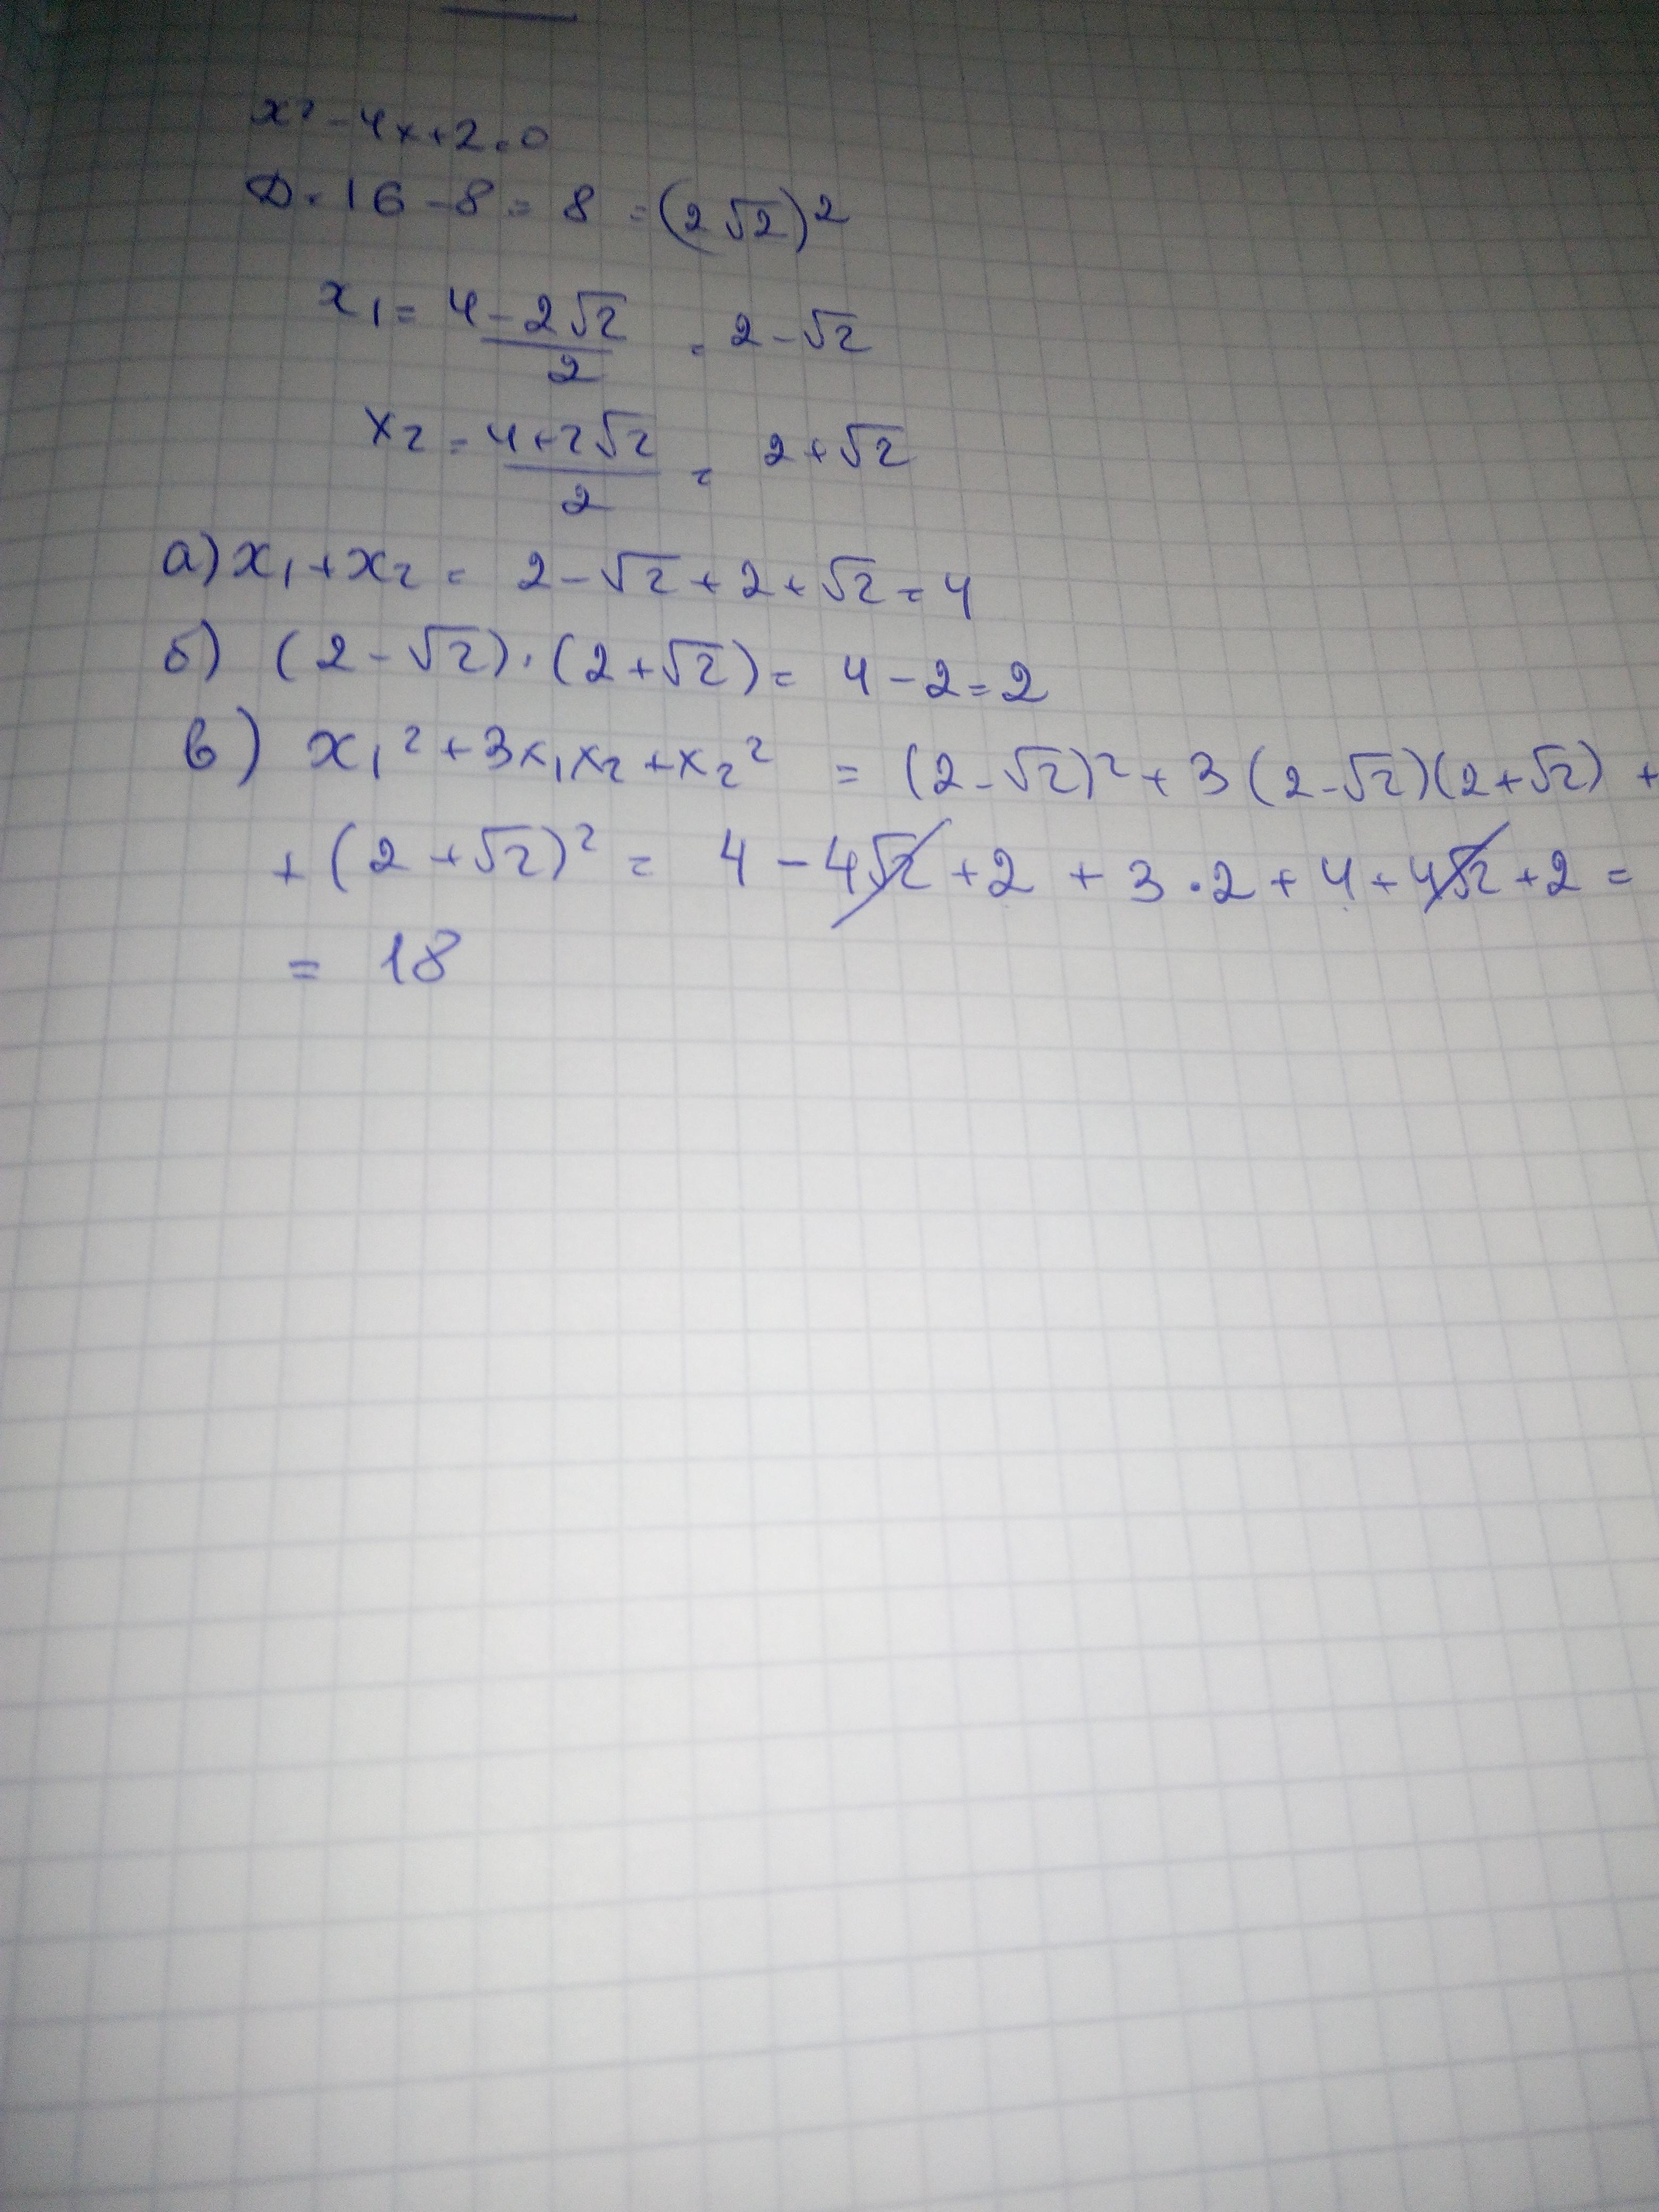 x² - 4x + 2 = 0
D = 16 - 8 = 8 = (2√2)²
x₁ = (4 - 2√2)/2 = 2 - √2
x₂ = (4 + 2√2)/2 = 2 + √2
а) x₁ + x₂ = 2 - √2 + 2 + √2 = 4
б) (2 - √2) · (2 + √2) = 4 - 2 = 2
в) x₁² + 3x₁x₂ + x₂² = (2 - √2)² + 3(2 - √2)(2 + √2) +
+ (2 + √2)² = 4 - 4√2 + 2 + 3 · 2 + 4 + 4√2 + 2 =
= 18